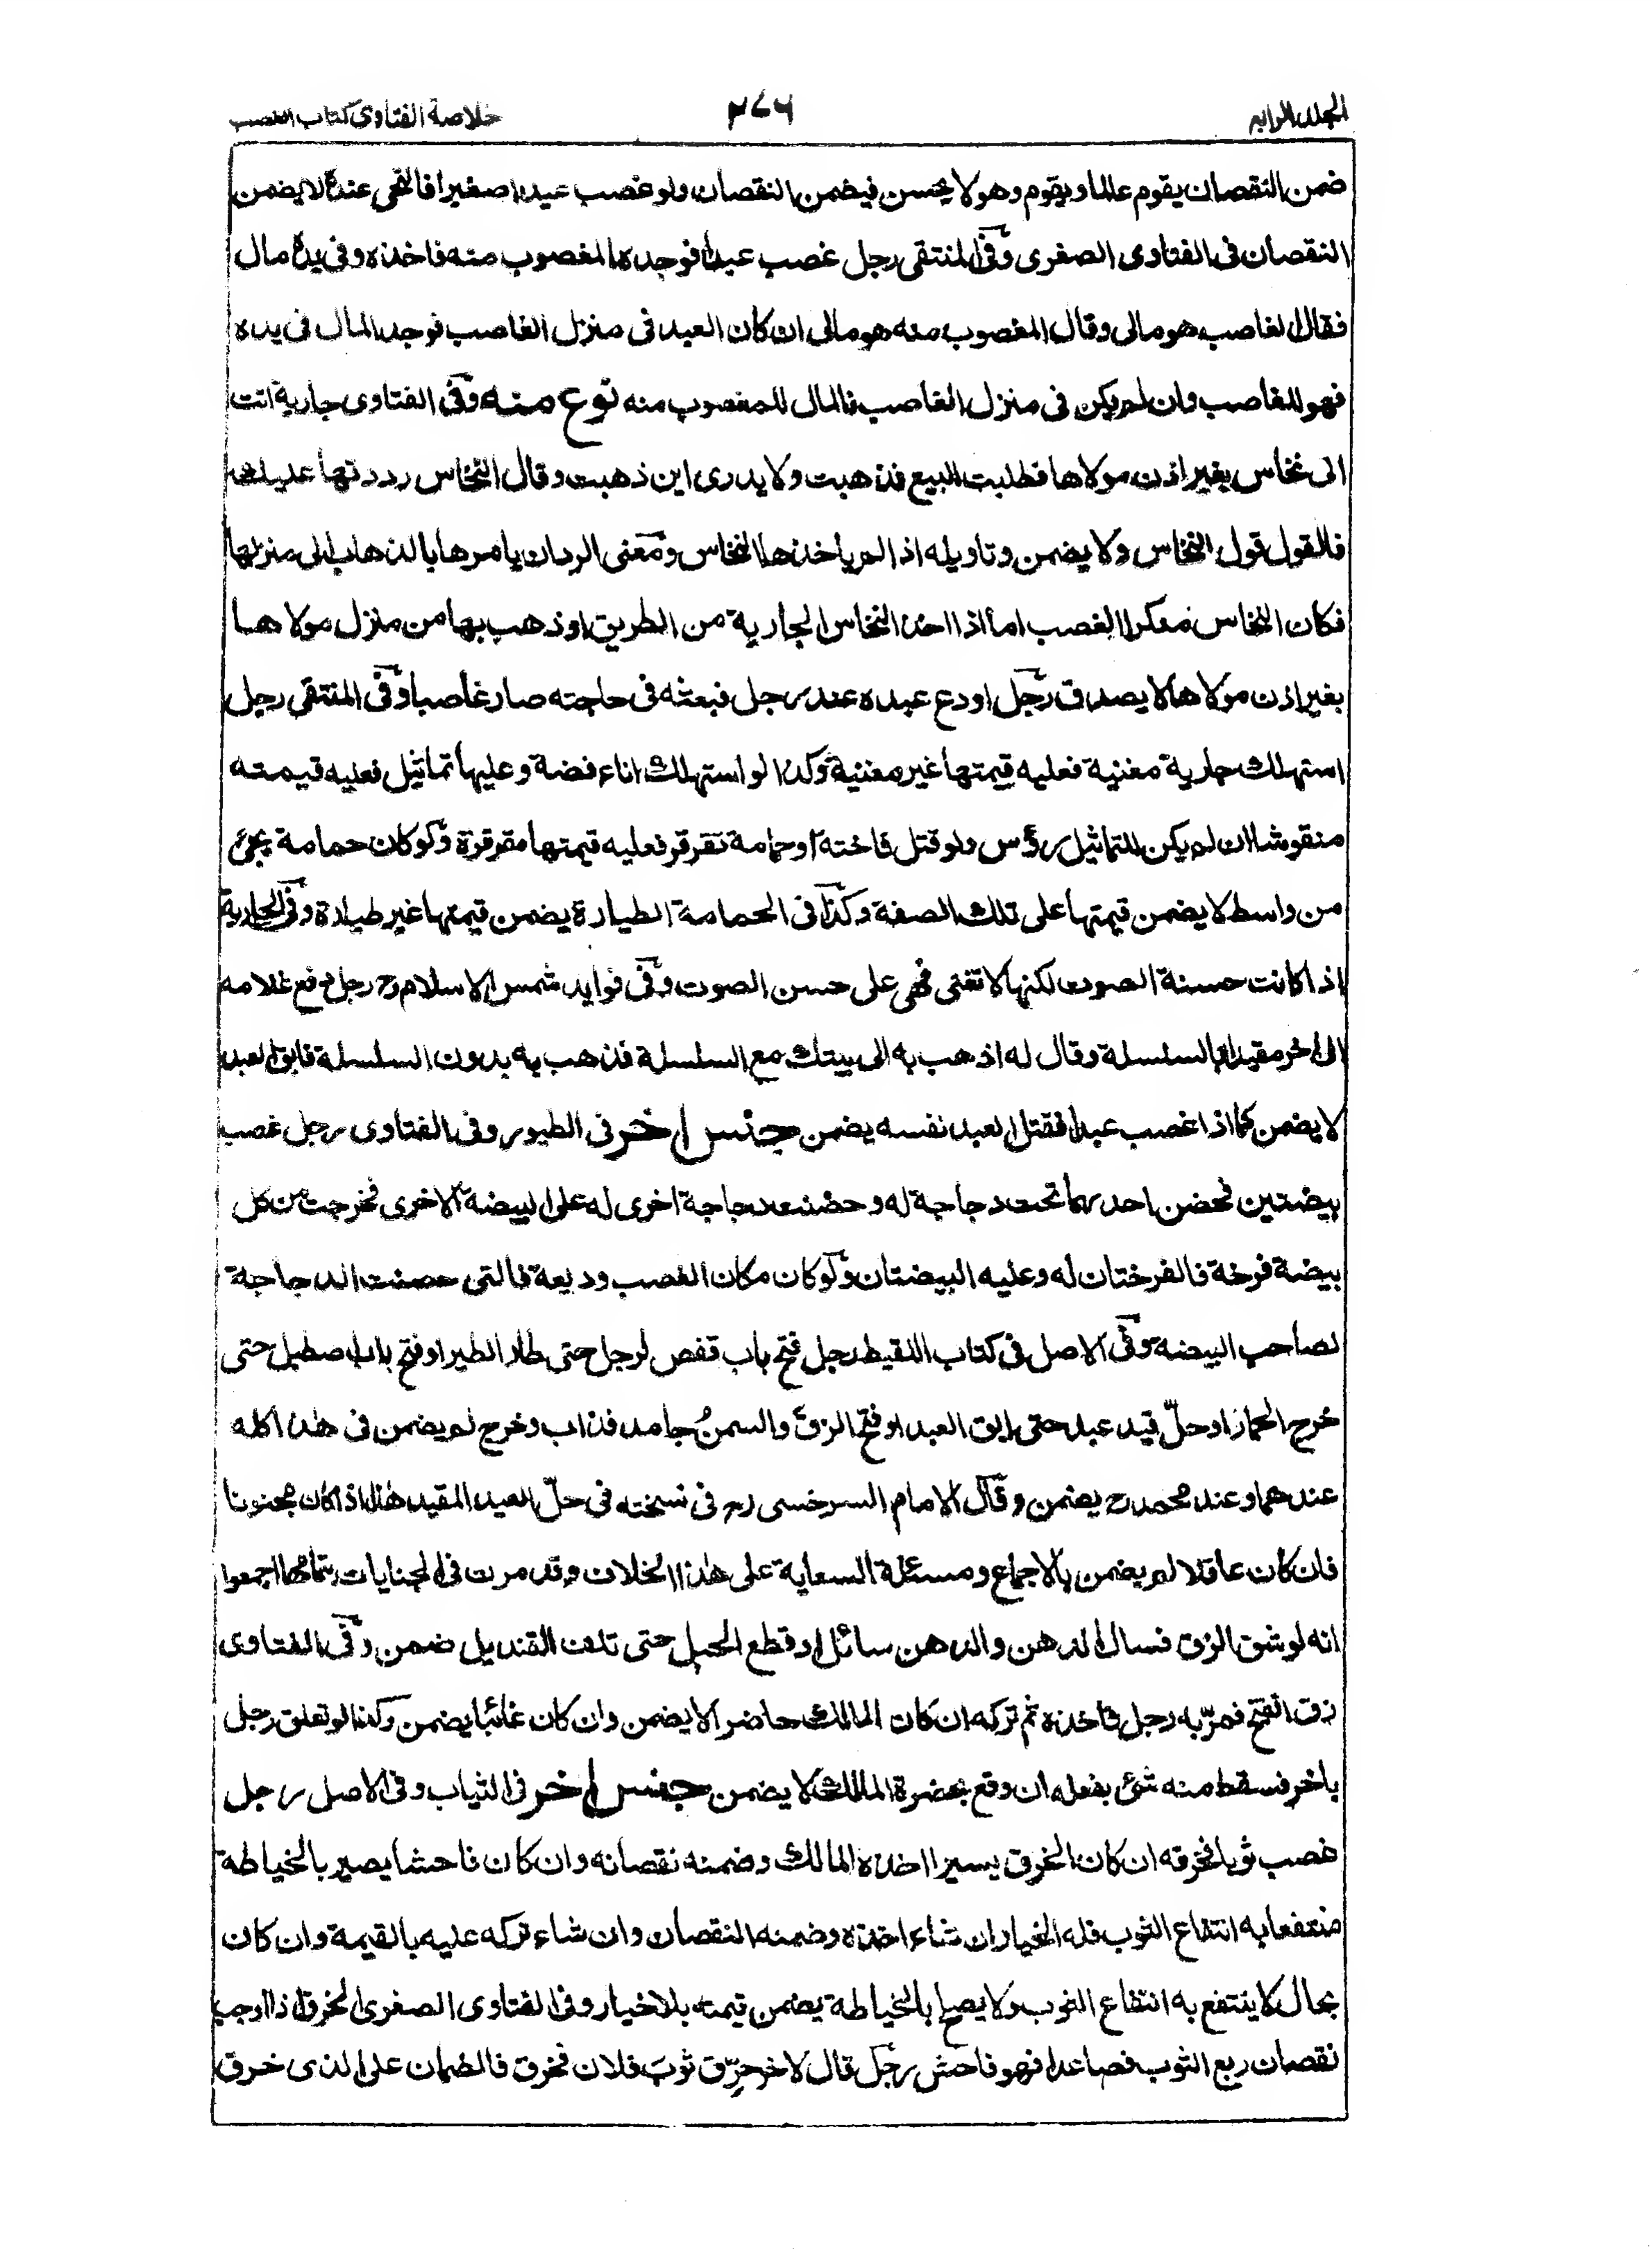 المجلد الرابع ٢٧٦ خلاصة الفتاوى كتاب الغصب
ضمن النقصان يقوم عالما ويقوم وهو لا يحسن فيضمن النقصان ولو غصب عبدا صغيرا فالتحى عنده لا يضمن
النقصان فى الفتاوى الصغرى وفى المنتقى رجل غصب عبدا فوجده المغصوب منه فاخذه وفى يده مال
فقال الغاصب هو مالى وقال المغصوب منه هو مالى ان كان العبد فى منزل الغاصب فوجد المال فى يده
فهو للغاصب وان لم يكن فى منزل الغاصب فالمال للمغصوب منه نوع منه وفى الفتاوى جارية اتت
الى نخاس بغير اذن مولاها فطلبت البيع فذهبت ولا يدرى اين ذهبت وقال النخاس رددتها عليك
فالقول قول النخاس ولا يضمن وتاويله اذا لم ياخذها النخاس ومعنى الرد ان يامرها بالذهاب الى منزلها
فكان النخاس منكرا الغصب اما اذا اخذ النخاس الجارية من الطريق او ذهب بها من منزل مولاها
بغير اذن مولاها لا يصدق رجل اودع عبده عند رجل فبعثه فى حاجته صار غاصبا وفى المنتقى رجل
استهلك جارية مغنية فعليه قيمتها غير مغنية وكذا لو استهلك اناء فضة وعليها تماثيل فعليه قيمته
منقوشا ان لم يكن للتماثيل رؤس ولو قتل فاختة او حمامة تقرقر فعليه قيمتها مقرقرة ولو كان حمامة يجئ
من واسط لا يضمن قيمتها على تلك الصفة وكذا فى الحمامة الطيارة يضمن قيمتها غير طيارة وفى الجارية
اذا كانت حسنة الصوت لكنها لا تغنى فهى على حسن الصوت وفى فوايد شمس الاسلام رح رجل دفع غلامه
الى اخر مقيدا بالسلسلة وقال له اذهب به الى بيتك مع السلسلة فذهب به بدون السلسلة فابق العبد
لا يضمن كما اذا غصب عبدا فقتل العبد نفسه يضمن جنس اخر فى الطيور وفى الفتاوى رجل غصب
بيضتين فحضن احدهما تحت دجاجة له وحضنت دجاجة اخرى له على البيضة الاخرى فخرجت من كل
بيضة فرخة فالفرختان له وعليه البيضتان ولو كان مكان الغصب وديعة فالتى حضنت الدجاجة
لصاحب البيضة وفى الاصل فى كتاب اللقيط رجل فتح باب قفص لرجل حتى طار الطير او فتح باب اصطبل حتى
خرج الحمار او حلّ قيد عبد حتى ابق العبد او فتح الزق والسمن جامد فذاب وخرج لم يضمن فى هذا كله
عندهما وعند محمد رح يضمن وقال الامام السرخسى رح فى نسخته فى حلّ العبد المقيد هذا اذا كان مجنونا
فان كان عاقلا لم يضمن بالاجماع ومسئلة السعاية على هذا الخلاف وقد مرت فى الجنايات بتمامها اجمعوا
انه لو شق الزق فسال الدهن والدهن سائل او قطع الحبل حتى تلف القنديل ضمن وفى الفتاوى
زق انفتح فمرّ به رجل فاخذه ثم تركه ان كان المالك حاضرا لا يضمن وان كان غائبا يضمن وكذا لو تعلق رجل
باخر فسقط منه شئ بفعله ان وقع بحضرة المالك لا يضمن جنس اخر فى الثياب وفى الاصل رجل
غصب ثوبا فخرقه ان كان الخرق يسيرا اخذه المالك وضمنه نقصانه وان كان فاحشا يصير بالخياطة
منتفعا به انتفاع الثوب فله الخيار ان شاء اخذه وضمنه النقصان وان شاء تركه عليه بالقيمة وان كان
بحال لا ينتفع به انتفاع الثوب ولا يصلح بالخياطة يضمن قيمته بلا خيار وفى الفتاوى الصغرى الخرق اذا اوجب
نقصان ربع الثوب فصاعدا فهو فاحش رجل قال لاخر خرّق ثوب فلان فخرق فالضمان على الذى خرق